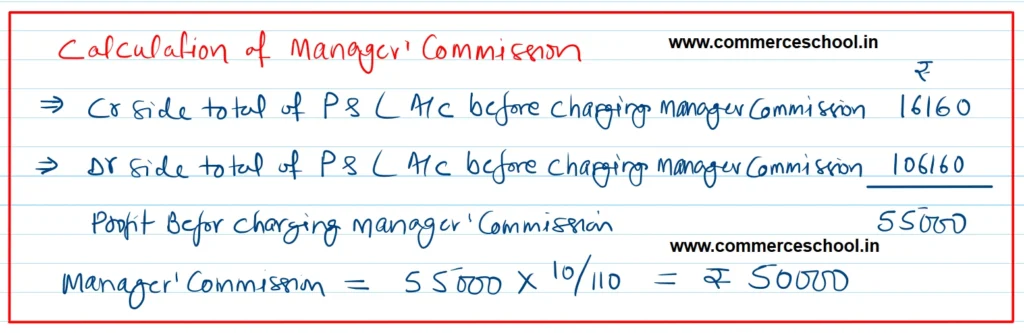 Calculation of Manager' Commission
www.commerceschool.in
₹
⇒ Cr Side total of P & L A/c before charging Manager Commission 16160
⇒ Dr Side total of P & L A/c before charging Manager Commission 106160
Profit Befor charging manager' Commission 55000
www.commerceschool.in
Manager' Commission = 55000 × 10/110 = ₹ 50000